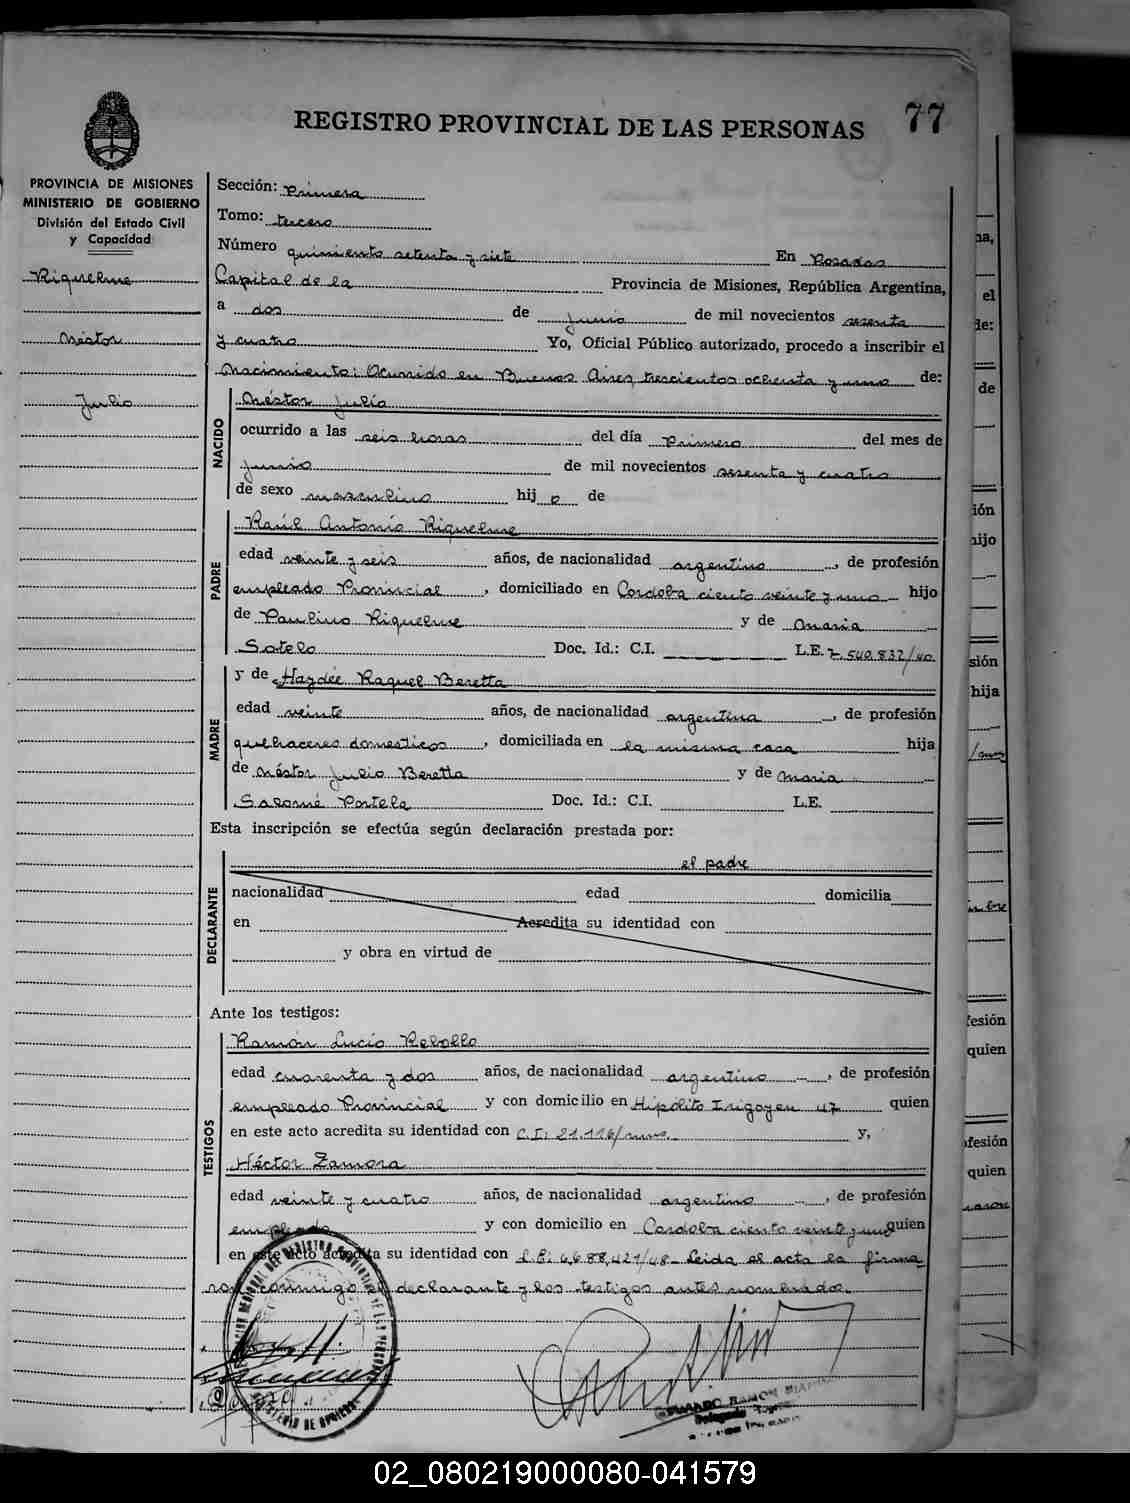 77
REGISTRO PROVINCIAL DE LAS PERSONAS
PROVINCIA DE MISIONES
MINISTERIO DE GOBIERNO
División del Estado Civil
y Capacidad
Riquelme
Néstor
Julio
Sección: Primera
Tomo: tercero
Número quiniento setenta y siete En Posadas
Capital de la Provincia de Misiones, República Argentina,
a dos de junio de mil novecientos sesenta
y cuatro Yo, Oficial Público autorizado, procedo a inscribir el
Nacimiento: Ocurrido en Buenos Aires trescientos ochenta y uno de:
NACIDO
Néstor Julio
ocurrido a las seis horas del día primero del mes de
junio de mil novecientos sesenta y cuatro
de sexo masculino hijo de
PADRE
Raúl Antonio Riquelme
edad veinte y seis años, de nacionalidad argentino, de profesión
empleado Provincial, domiciliado en Cordoba ciento veinte y uno hijo
de Paulino Riquelme y de Maria
Sotelo Doc. Id.: C.I. L.E. 7.540.832/40
MADRE
y de Haydée Raquel Beretta
edad veinte años, de nacionalidad argentina, de profesión
quehaceres domesticos, domiciliada en la misma casa hija
de Néstor Julio Beretta y de Maria
Salomé Portela Doc. Id.: C.I. L.E.
Esta inscripción se efectúa según declaración prestada por:
DECLARANTE
el padre
nacionalidad edad domicilia
en Acredita su identidad con
y obra en virtud de
Ante los testigos:
TESTIGOS
Ramón Lucio Rebollo
edad cuarenta y dos años, de nacionalidad argentino, de profesión
empleado Provincial y con domicilio en Hipólito Irigoyen 47 quien
en este acto acredita su identidad con C.I: 21.116/mns. y,
Héctor Zamora
edad veinte y cuatro años, de nacionalidad argentino, de profesión
empleado y con domicilio en Cordoba ciento veinte y uno quien
en este acto acredita su identidad con L.E: 6.688.421/48. Leida el acta la firma
ron conmigo el declarante y los testigos antes nombrados.
RAMON
Delegado
02_080219000080-041579